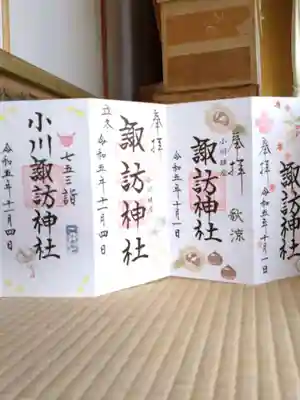 奉拝
諏訪神社
令和五年十月一日
小川鎮座
奉拝
秋涼
諏訪神社
令和五年十月一日
立冬
奉拝
諏訪神社
令和五年十一月四日
七五三詣
小川諏訪神社
令和五年十一月四日